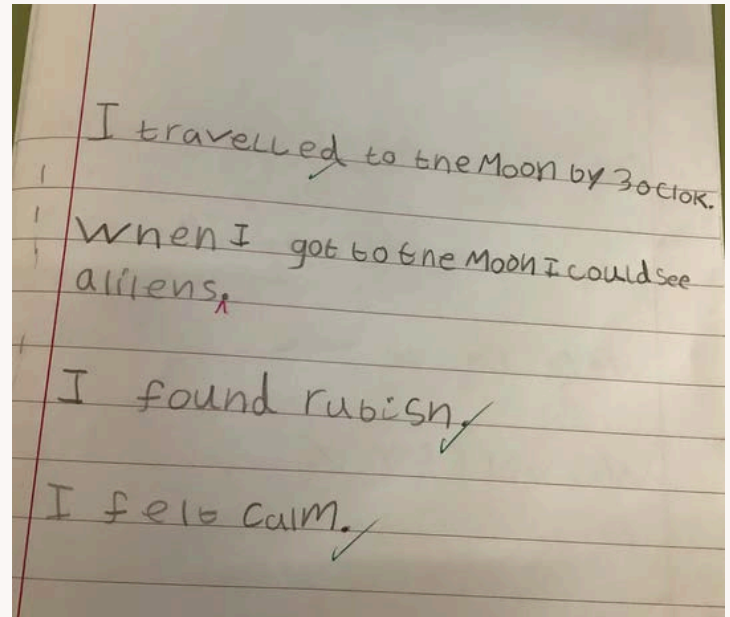 I travelled to the Moon by 3oclok.
When I got to the Moon I could see
aliiens.
I found rubish.
I felt calm.